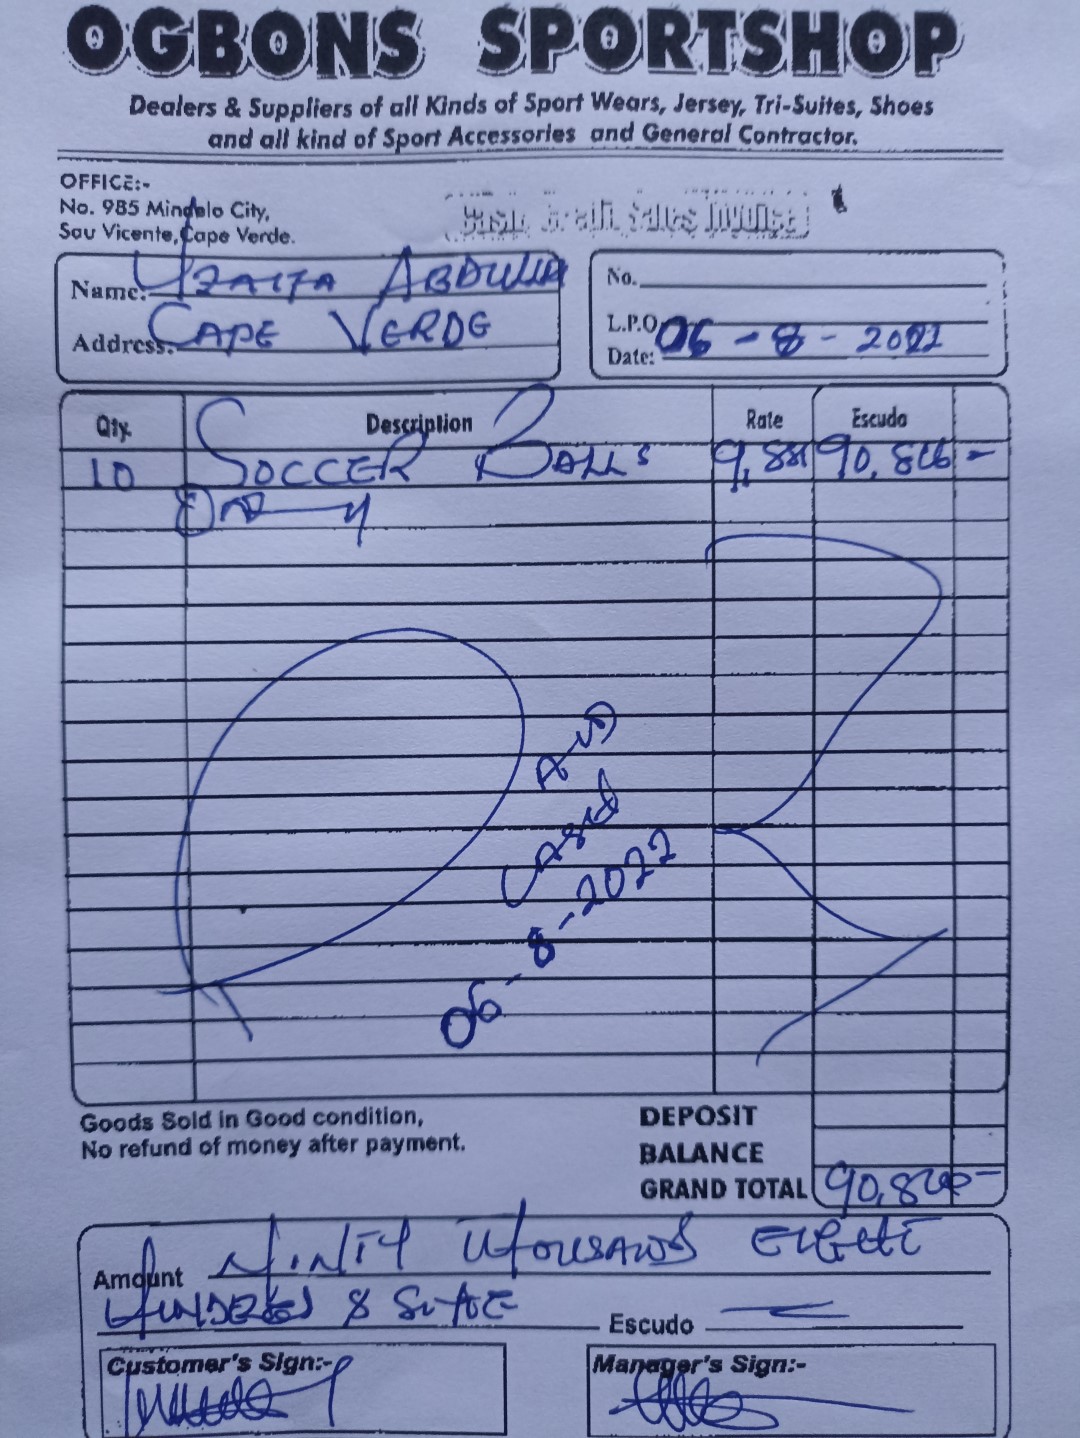 OGBONS SPORTSHOP
Dealers & Suppliers of all Kinds of Sport Wears, Jersey, Tri-Suites, Shoes
and all kind of Sport Accessories and General Contractor.
OFFICE:-
No. 985 Mindelo City,
Sau Vicente, Cape Verde.
Sales Invoice
Name:
Address: CAPE VERDE
No.
L.P.O
Date: 06-8-2022
Qty. Description Rate Escudo
10 SOCCER BALLS 90,8
CASH
06-8-2022
Goods Sold in Good condition,
No refund of money after payment.
DEPOSIT
BALANCE
GRAND TOTAL 90,8
Amount NINTY THOUSAND EIGHT
HUNDERED &
Escudo
Customer's Sign:-
Manager's Sign:-